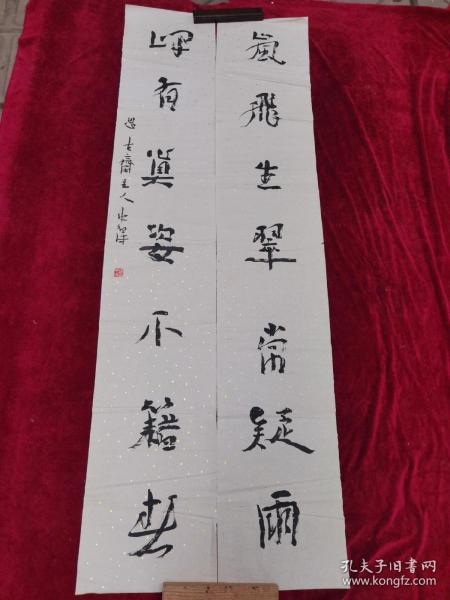 嵐飛生翠常疑雨
有異姿不籍春
思古齋主人
孔夫子旧书网
www.kongfz.com